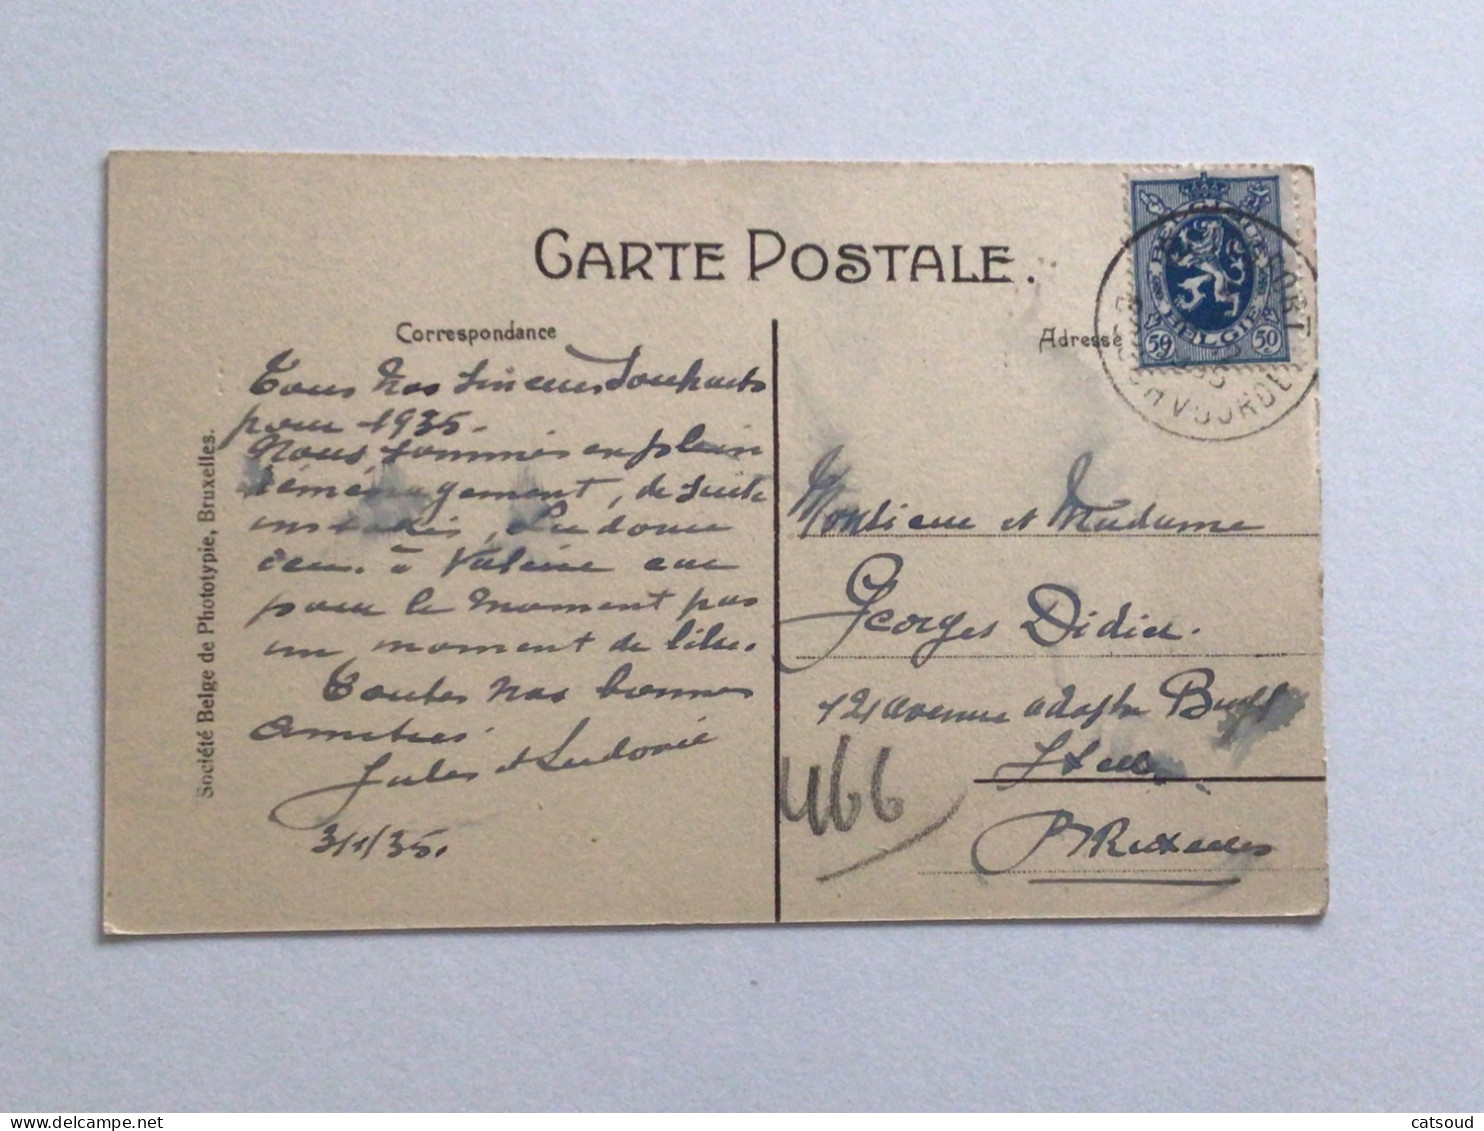 CARTE POSTALE.
Correspondance
Tous nos sincères souhaits
pour 1935.
Nous sommes en plein
déménagement, de suite
à
pour le moment pas
un moment de libre.
Toutes nos bonnes
amitiés
Jules et Ludovic
3/1/35.
Société Belge de Phototypie, Bruxelles.
Adresse
BELGIQUE
BELGIE
50 50
Monsieur et Madame
Georges Didier.
121 avenue Adolphe Buyl
Ixelles
Bruxelles
466
www.delcampe.net
catsoud